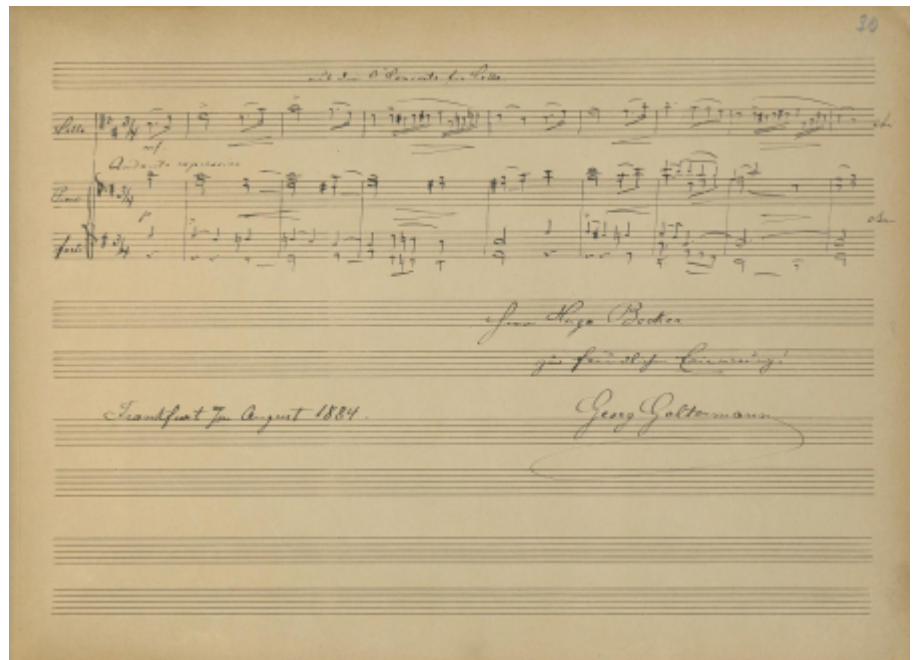 30
aus dem Concerte für Cello.
Cello
mf.
Andante espressivo
Piano
p
forte
Herrn Hugo Becker
zur freundlichen Erinnerung!
Frankfurt im August 1884.
Georg Goltermann